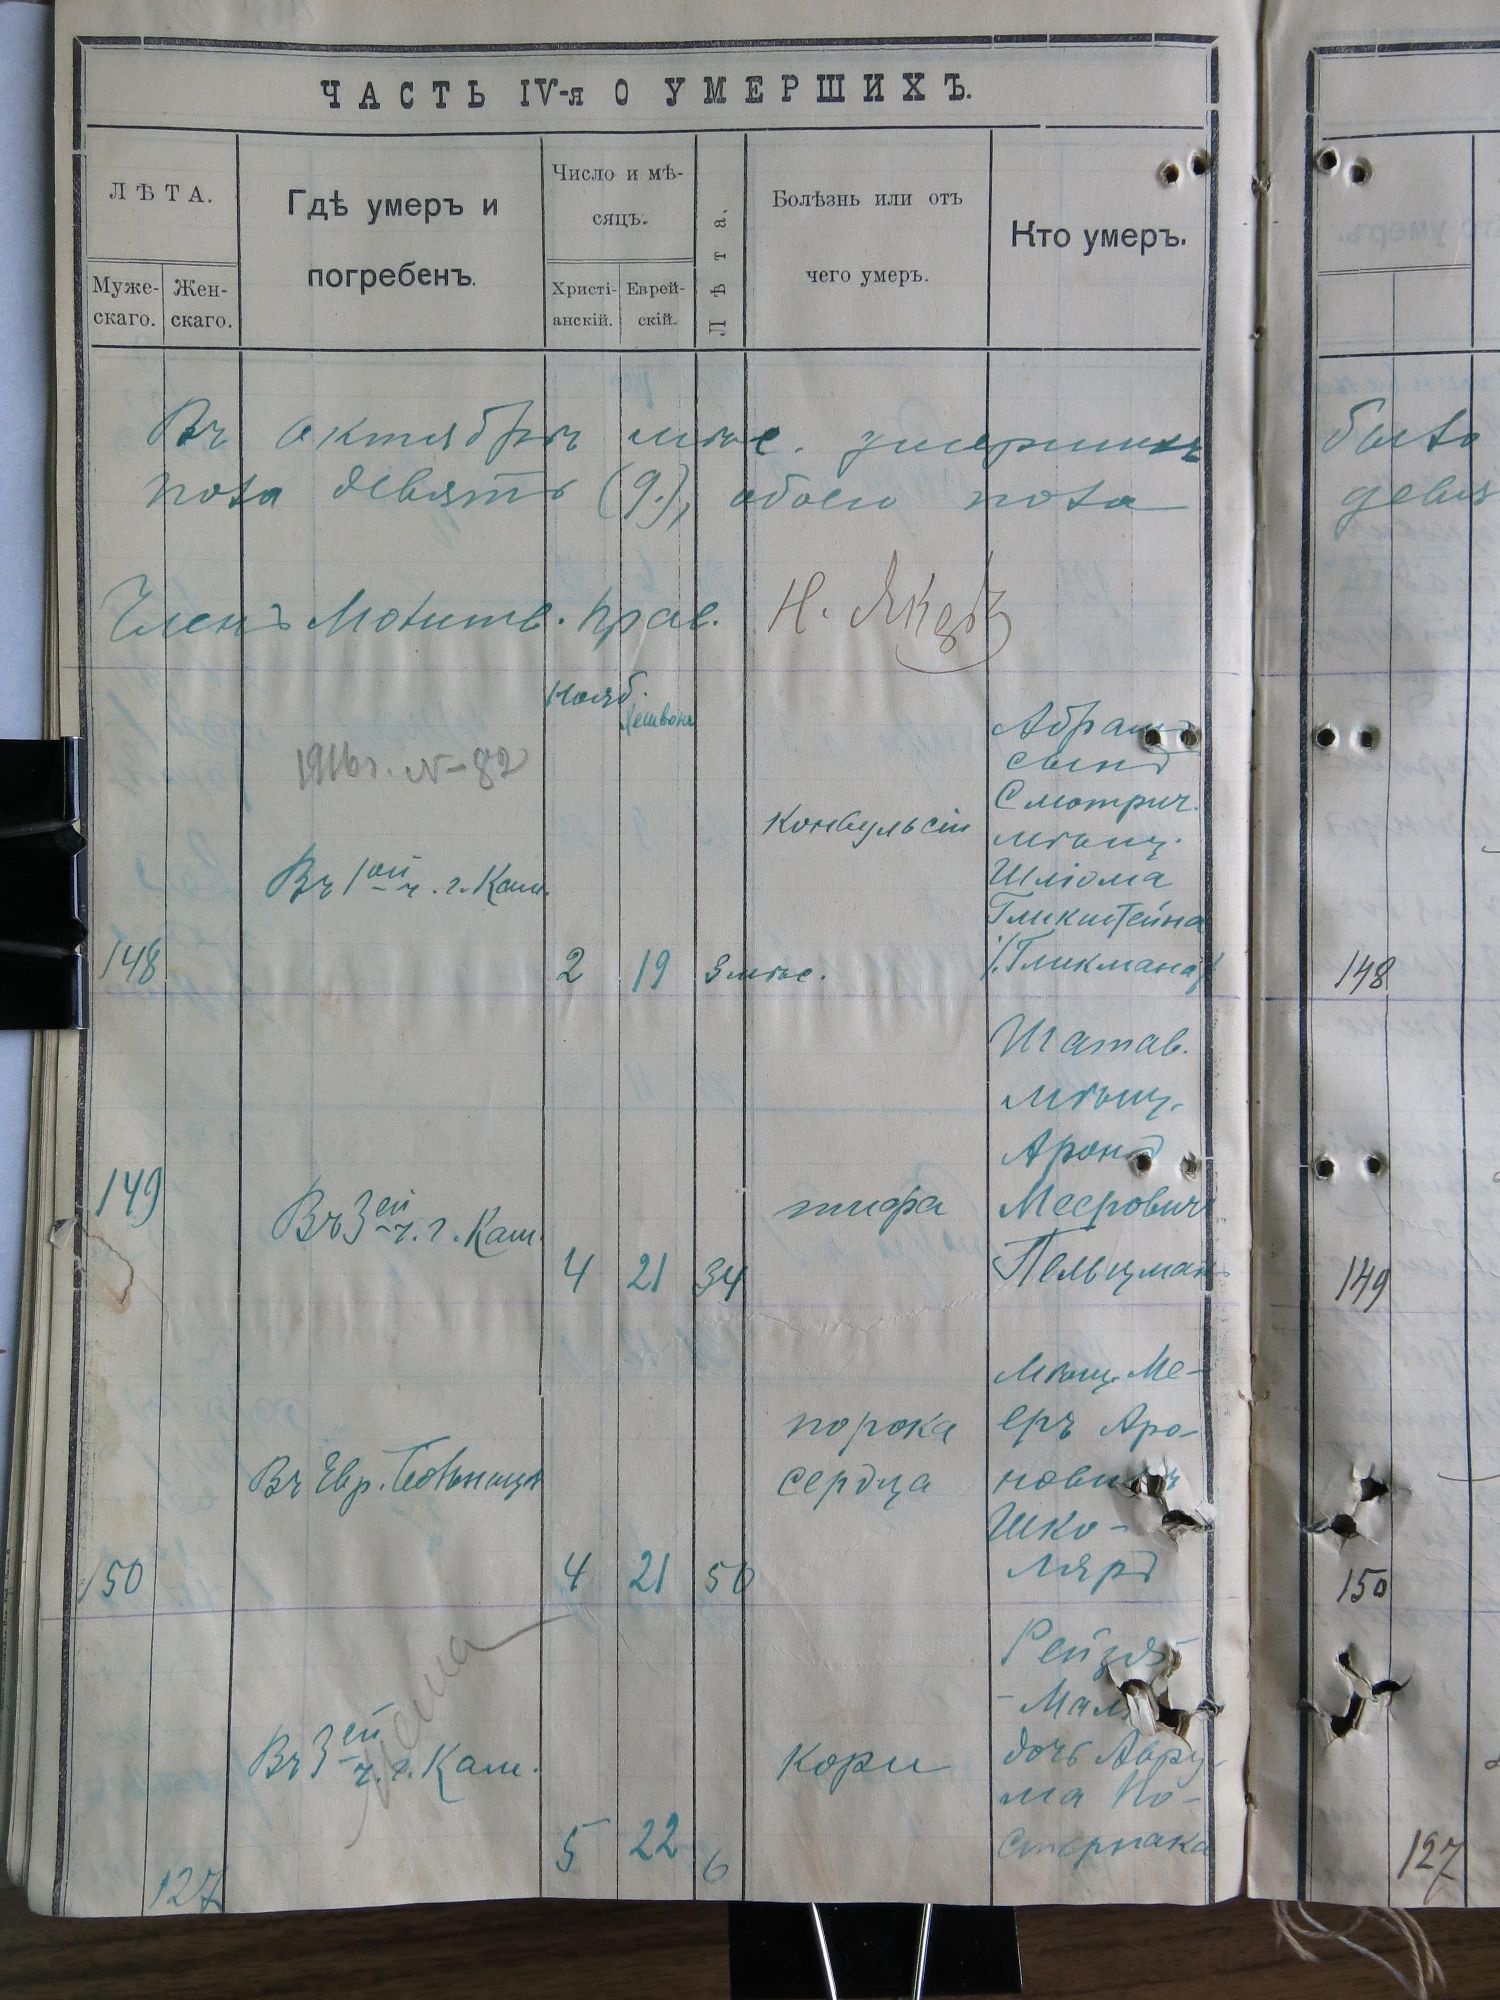 ЧАСТЬ IV-я О УМЕРШИХЪ.
ЛѢТА.
Муже-
скаго.
Жен-
скаго.
Гдѣ умеръ и
погребенъ.
Число и мѣ-
сяцъ.
Христі-
анскій.
Еврей-
скій.
Лѣта.
Болѣзнь или отъ
чего умеръ.
Кто умеръ.
Въ октябрѣ мѣс. умершихъ
пола девять (9.), обоего пола
Членъ Молитв. Прав.
Нояб.
Хешвонъ
1916 г. № 82
148
Въ 1ой ч. г. Кам.
2
19
3 мѣс.
Конвульсіи
Абрамъ
сынъ
Смотрич.
мѣщ.
Шліома
Гликштейна
/.Гликмана./
149
Въ 3ей ч. г. Кам.
4
21
34
тифа
Шатав.
мѣщ.
Аронъ
Мееровичъ
Пельцманъ
150
Въ Евр. Больницѣ
4
21
50
порока
сердца
мѣщ. Ме-
еръ Аро-
новичъ
Шко-
ляръ
127
Въ 3ей ч. г. Кам.
5
22
6
кори
дочь Авру-
ма По-
стернака
было
148
149
150
127